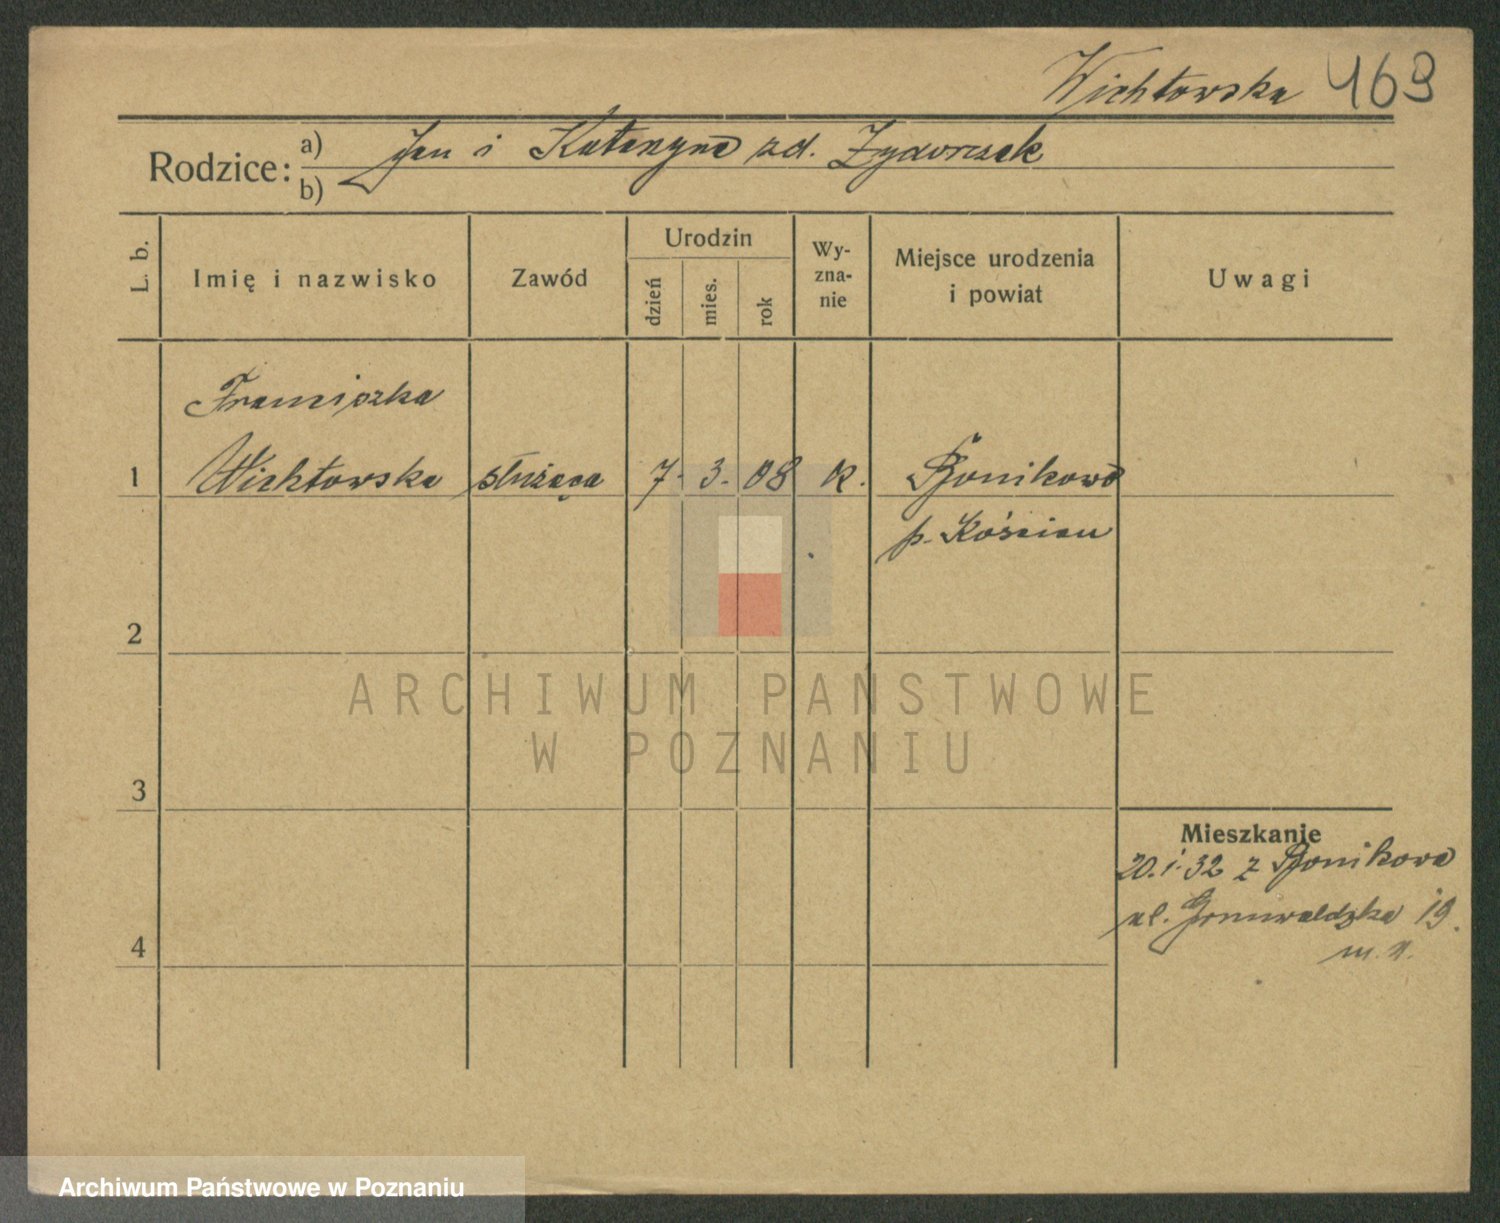 Wichtowska 469
Rodzice: a) Jan i Katarzyna zd. Zydorczak
b)
L. b. Imię i nazwisko Zawód Urodzin dzień mies. rok Wy-zna-nie Miejsce urodzenia i powiat Uwagi
Franciszka
1 Wichtowska służąca 7. 3. 08 k. Bonikowo
p. Kościan
2
ARCHIWUM PAŃSTWOWE
W POZNANIU
3
Mieszkanie
20.1.32 z Bonikowa
ul. Grunwaldzka 19.
4
Archiwum Państwowe w Poznaniu